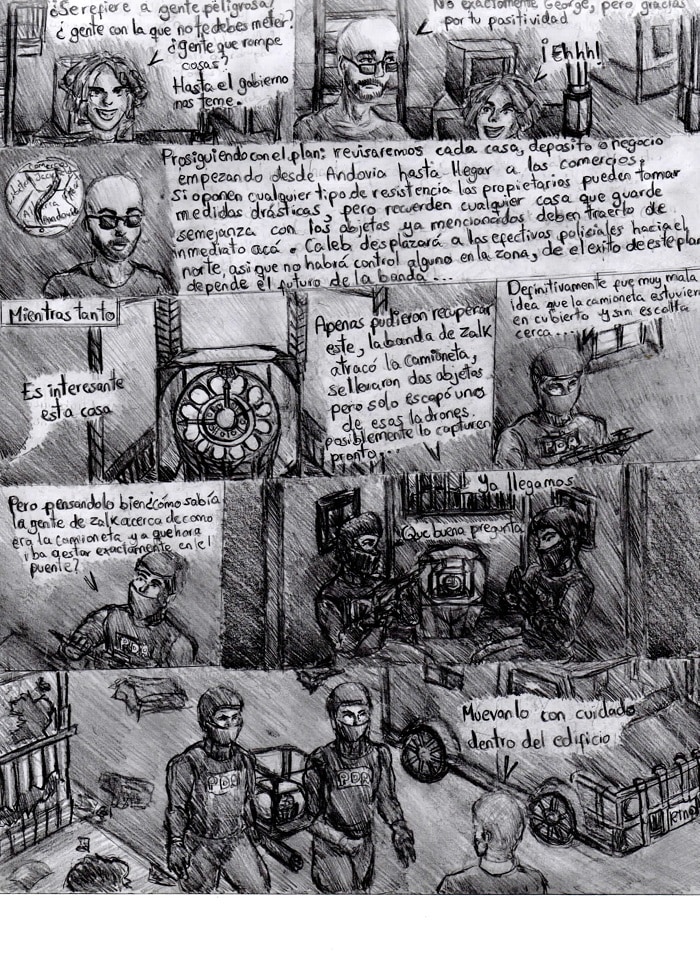 ¿Se refiere a gente peligrosa?
¿gente con la que no te debes meter?
¿gente que rompe
cosas,
Hasta el gobierno
nos teme.
No exactamente George, pero gracias
por tu positividad
¡Ehhh!
Prosiguiendo con el plan: revisaremos cada casa, deposito o negocio
empezando desde Andovia hasta llegar a los comercios,
Si oponen cualquier tipo de resistencia los propietarios pueden tomar
medidas drásticas, pero recuerden cualquier casa que guarde
semejanza con los objetos ya mencionados deben traerlo de
inmediato acá. Caleb desplazará a las efectivas policiales hacia el
norte, asi que no habrá control alguno en la zona, de el exito de este plan
depende el futuro de la banda...
Mientras tanto
Es interesante
esta casa
Apenas pudieron recuperar
este, la banda de Zalk
atracó la camioneta,
se llevaron dos objetos
pero solo escapó uno
de esos ladrones.
posiblemente lo capturen
pronto...
Definitivamente fue muy mala
idea que la camioneta estuviera
en cubierto y sin escolta
cerca...
PDR
Pero pensandolo bien ¿cómo sabía
la gente de Zalk acerca de como
era la camioneta y a que hora
iba a estar exactamente en el
puente?
PDR
Ya llegamos
Que buena pregunta
PDR
PDR
Muevanlo con cuidado
dentro del edificio